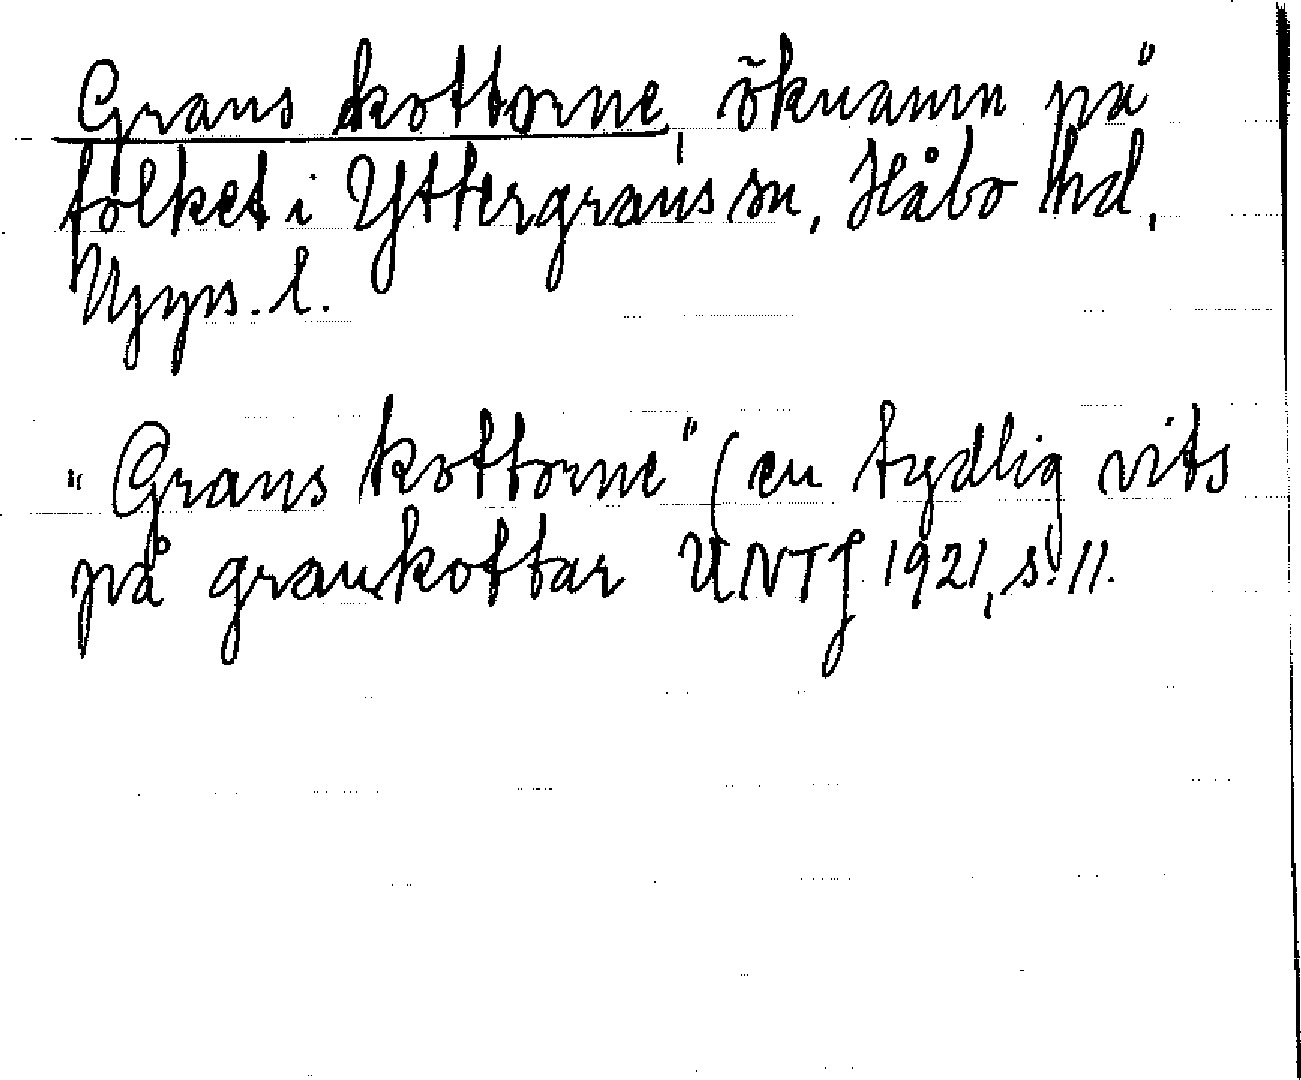 Grans kottorne, öknamn på
folket i Yttergrans sn, Håbo hd,
Upps. l.
"Grans kottorne" (en tydlig vits
på grankottar UNTJ 1921, s. 11.